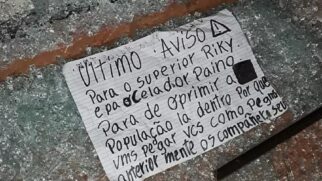 Último Aviso
Para o superior Riky
e pa o Celador Paino
Para de oprimir a
População la dentro Por que
vms pegar vcs como Pegmo
anterior mente os companhero seu